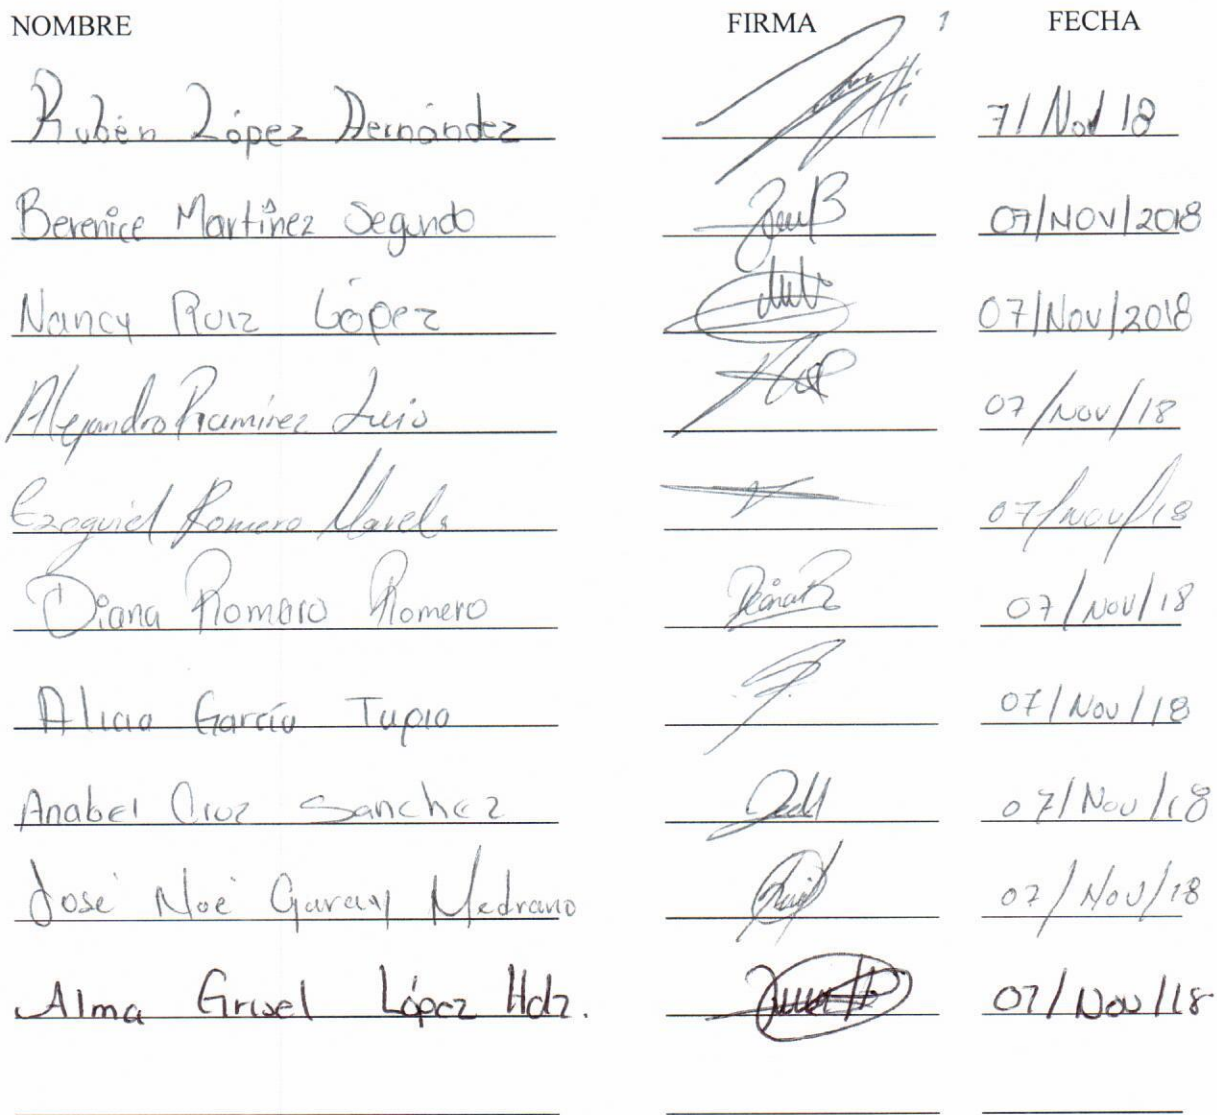 NOMBRE FIRMA FECHA
Rubén López Hernández 7/Nov/18
Berenice Martínez Segundo 07/NOV/2018
Nancy Ruiz López 07/Nov/2018
Alejandro Ramírez Luis 07/Nov/18
Ezequiel Romero 07/Nov/18
Diana Romero Romero DianaR 07/Nov/18
Alicia García Tapia 07/Nov/18
Anabel Cruz Sanchez 07/Nov/18
José Noé Garay Medrano 07/Nov/18
Alma Grisel López Hdz. 07/Nov/18